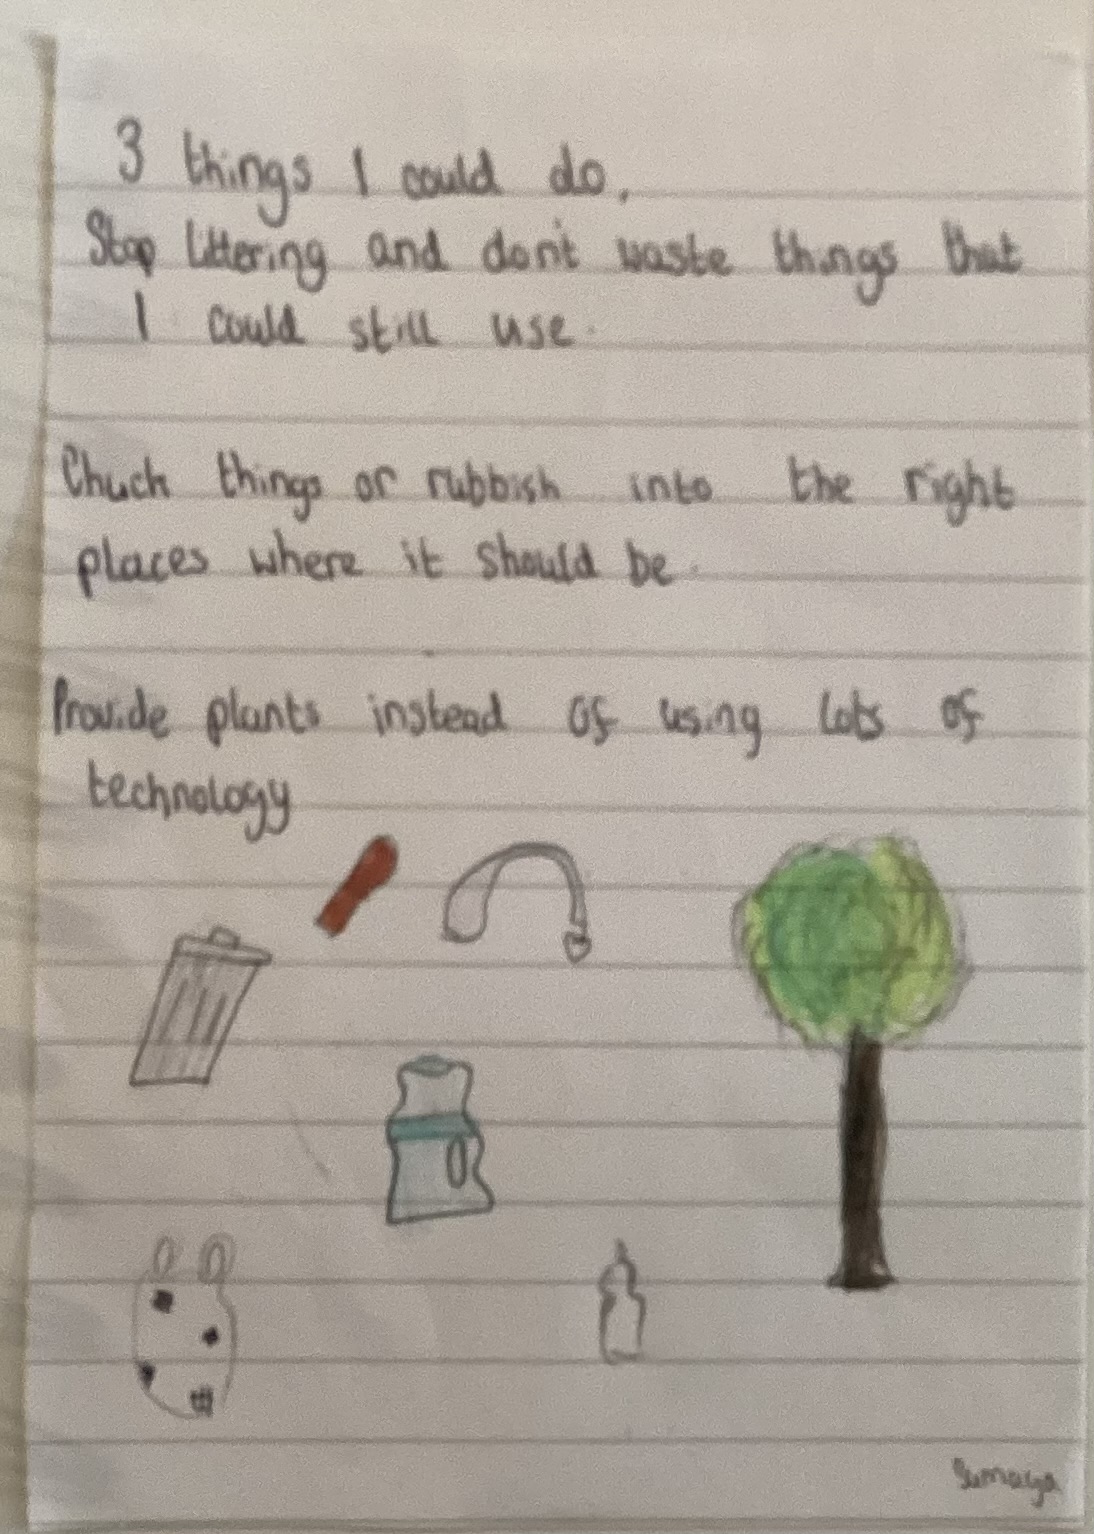 3 things I could do.
Stop littering and don't waste things that
I could still use.
Chuck things or rubbish into the right
places where it should be.
Provide plants instead of using lots of
technology
Sumaya